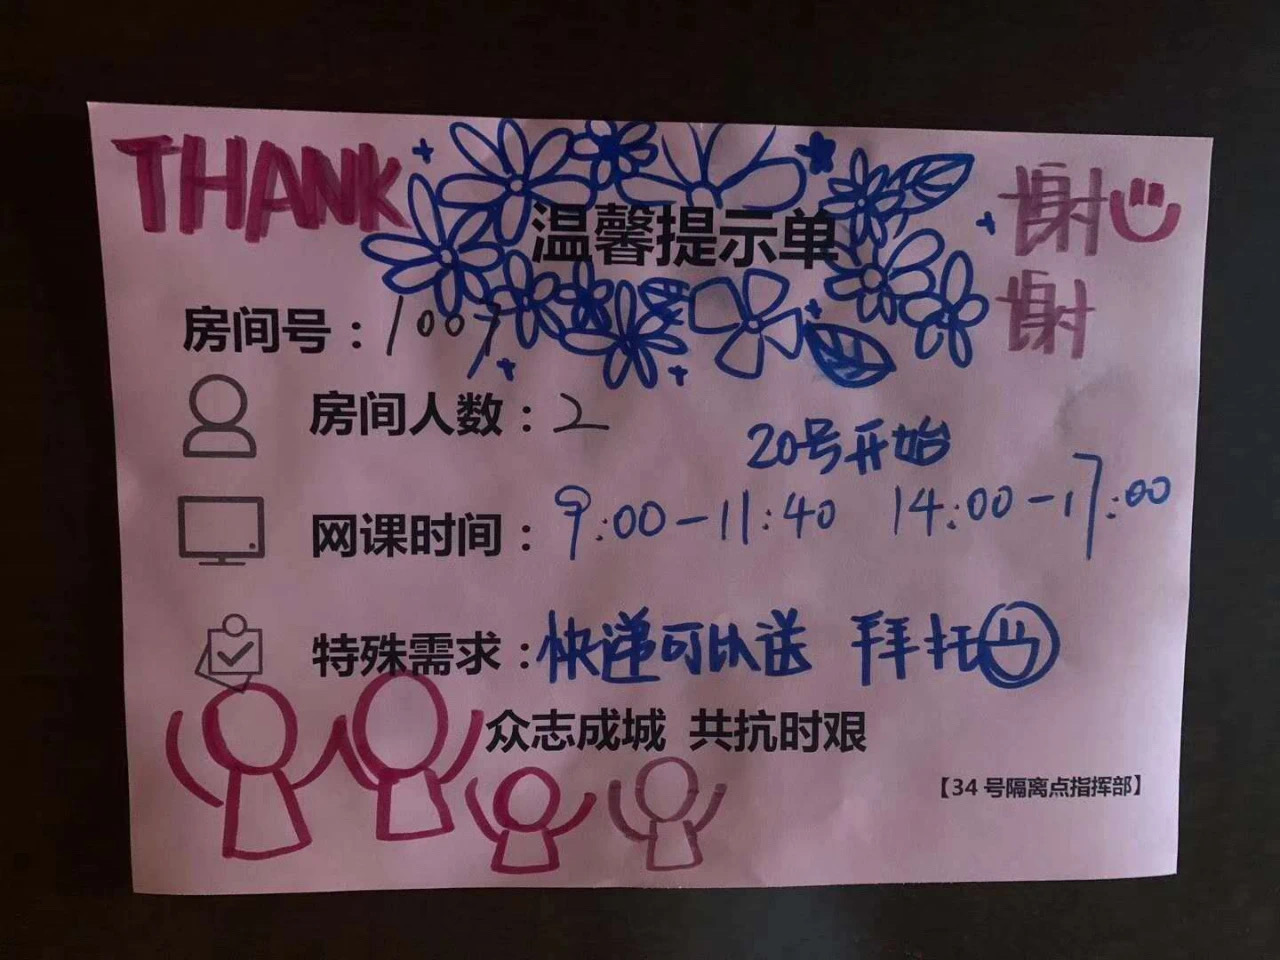 THANK
温馨提示单
谢
谢
房间号：1007
房间人数：2
20号开始
网课时间：9:00-11:40 14:00-17:00
特殊需求：快递可以送 拜托
众志成城 共抗时艰
【34 号隔离点指挥部】